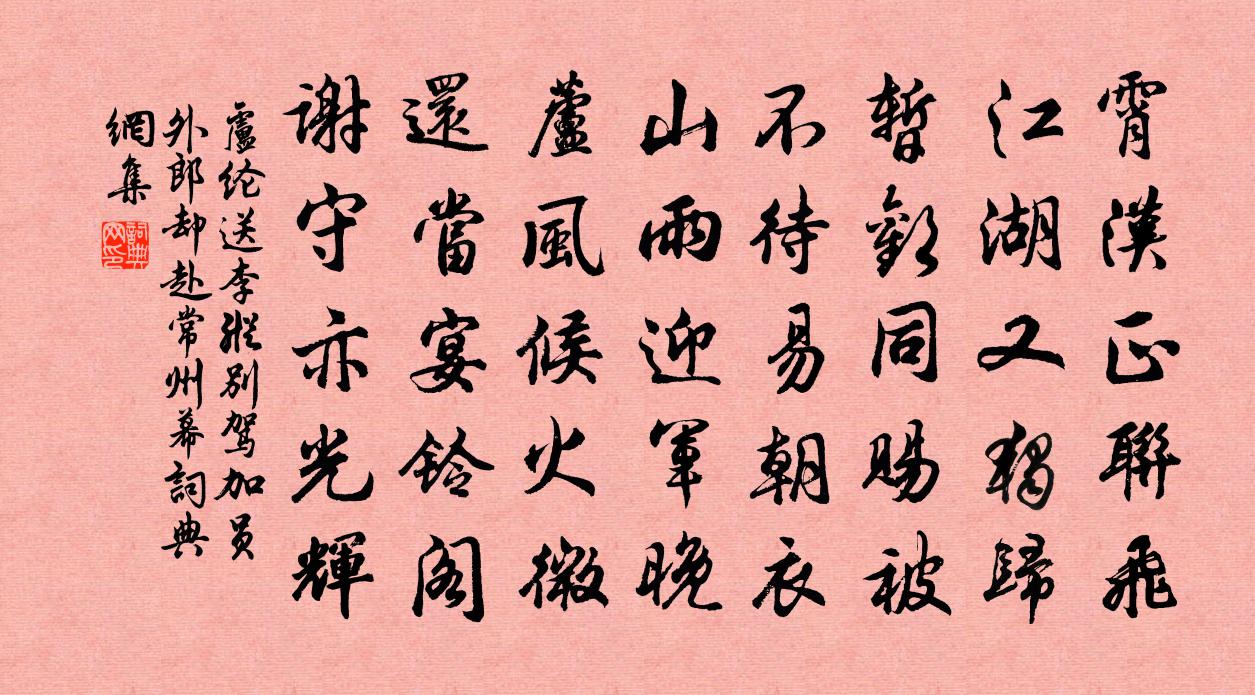 霄漢正聯飛
江湖又獨歸
暫歡同賜被
不待易朝衣
山雨迎軍晚
蘆風候火微
還當宴鈴阁
謝守亦光輝
盧纶送李縱别駕加员
外郎却赴常州幕詞典
網集
詞典网印